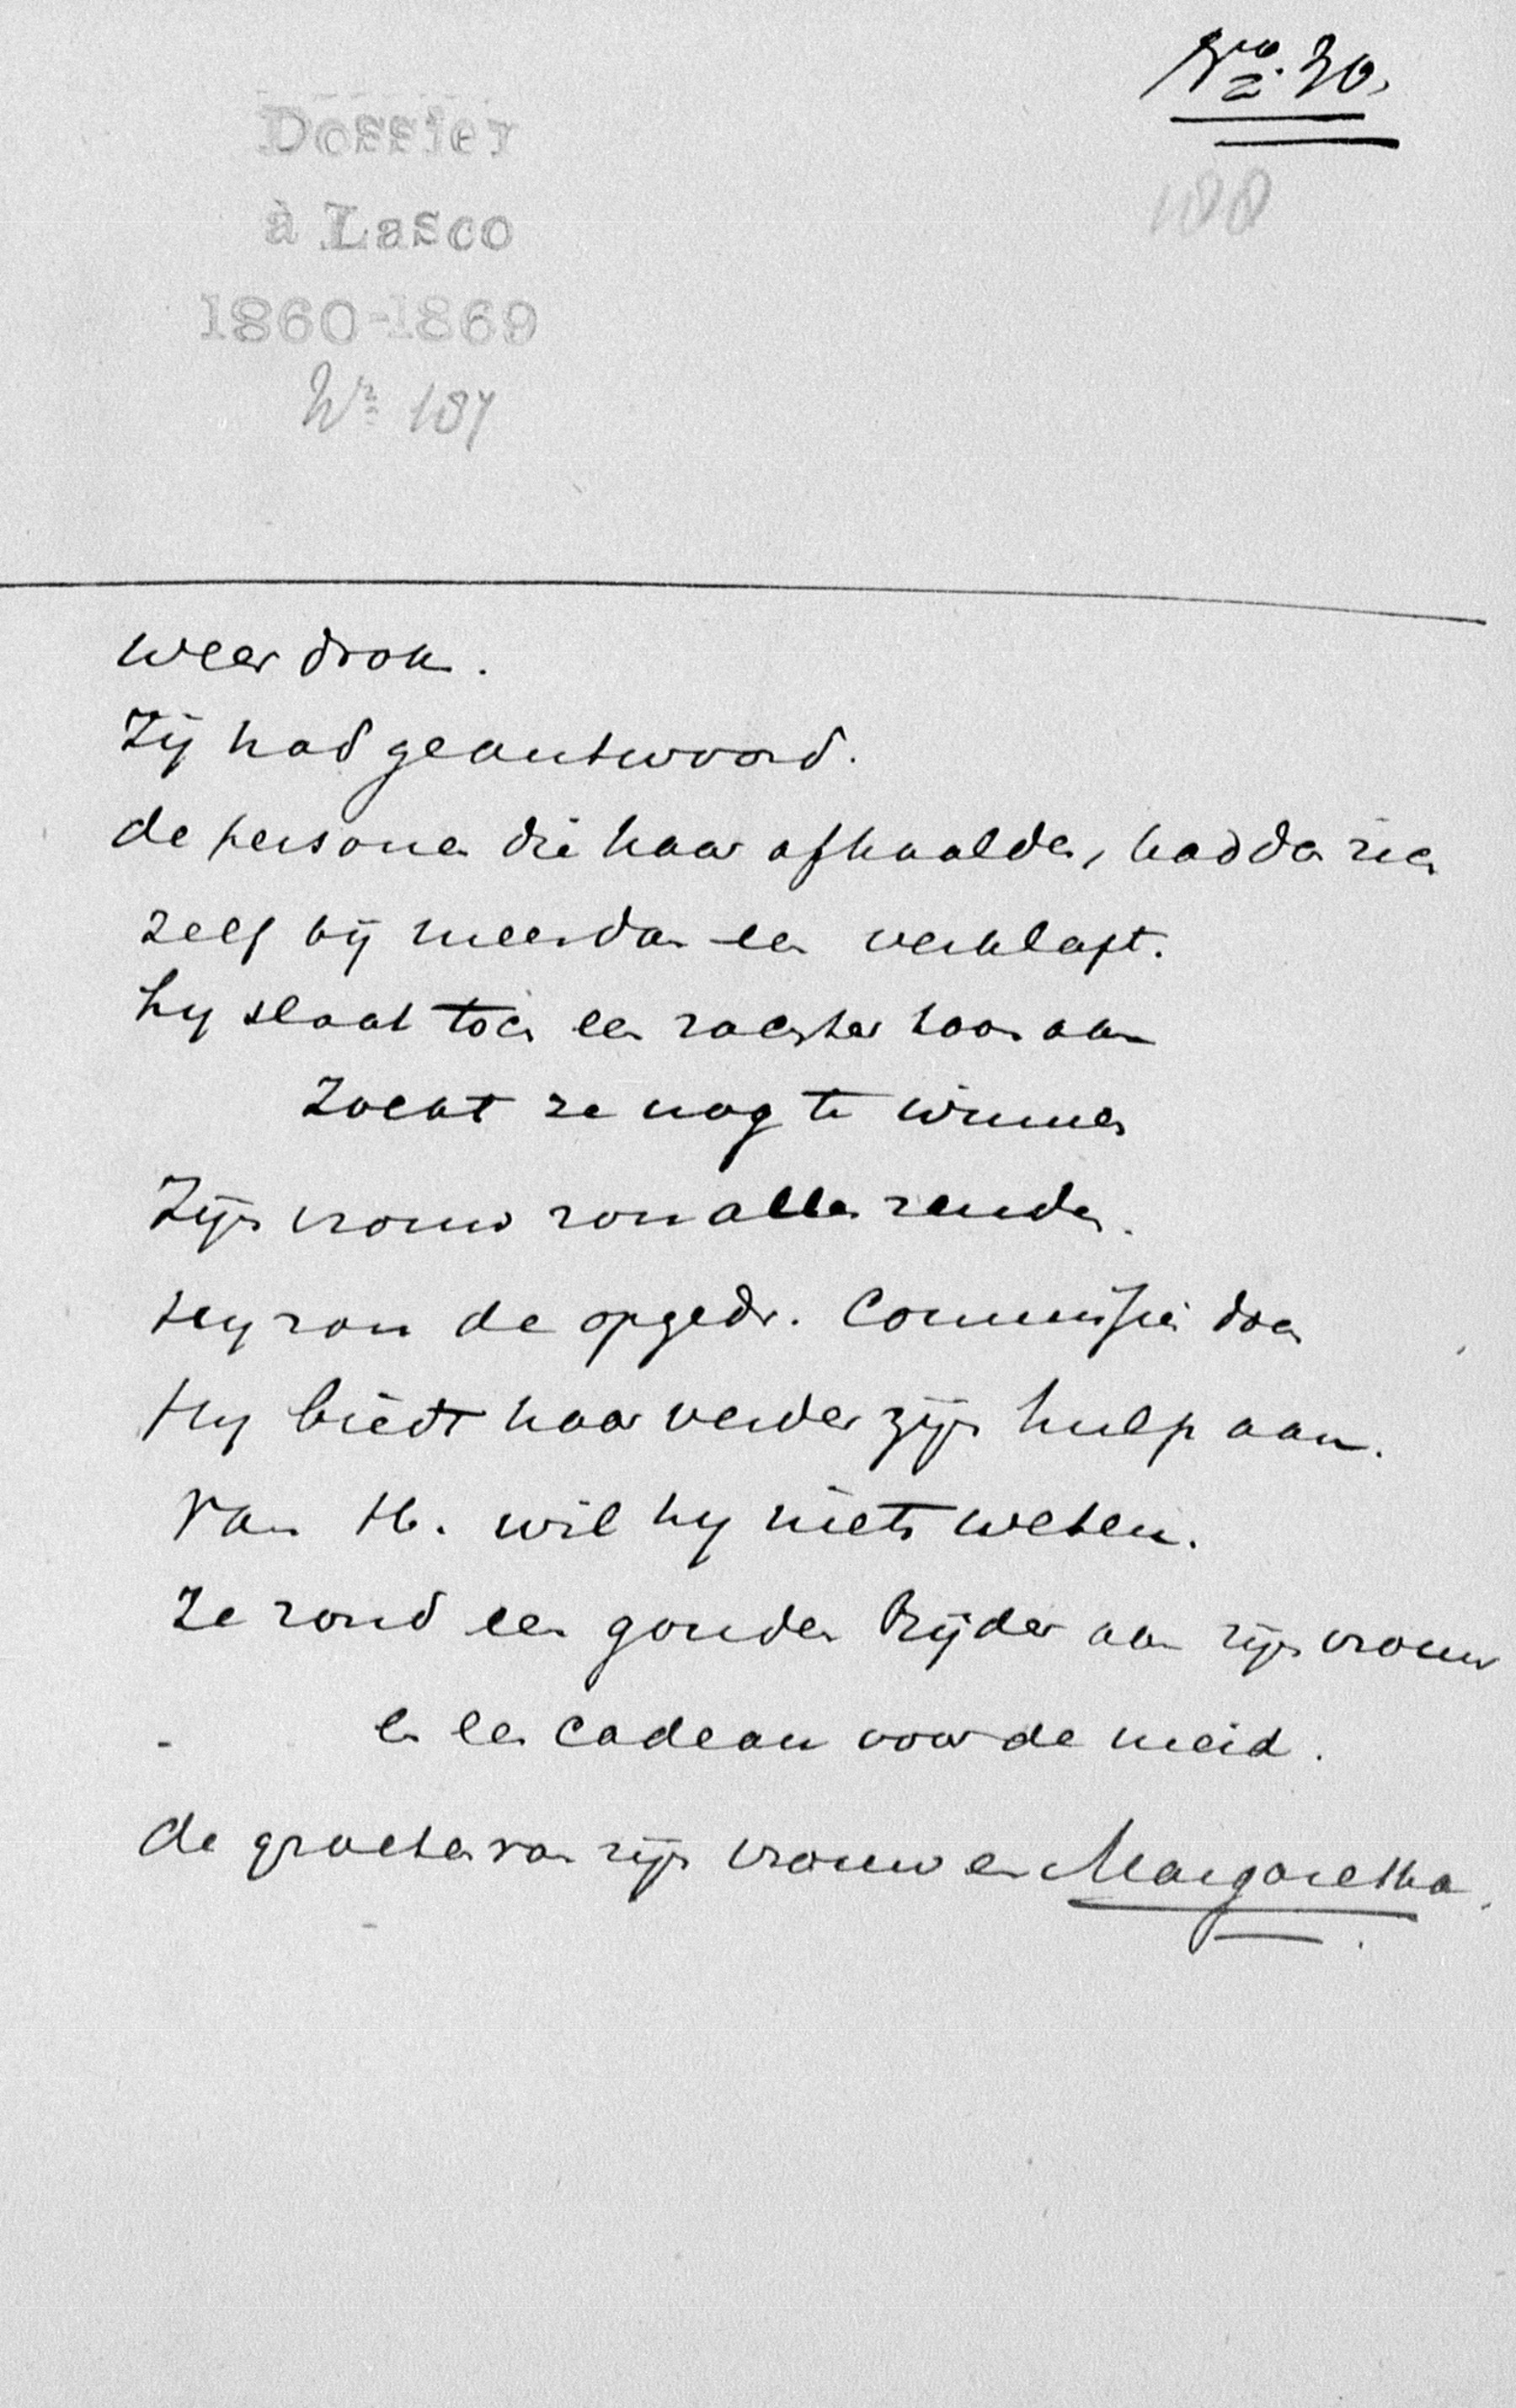 No. 30.
Dossier
à Lasco
1860-1869
188
Nr 187
weer drok.
Zij had geantwoord.
de personen die haar afhaalden, hadden zich
zelf bij meer dan een verklapt.
hy slaat toen een zachter toon aan
Zocht ze nog te winnen
Zijn vrouw zou alles zenden.
Hy zou de opgedr. Commissie doen
Hy biedt haar verder zijn hulp aan.
Van H. wil hy niets weten.
Ze zond een gouden Rijder aan zijn vrouw
en een cadeau voor de meid.
de groeten van zijn vrouw en Margaretha.